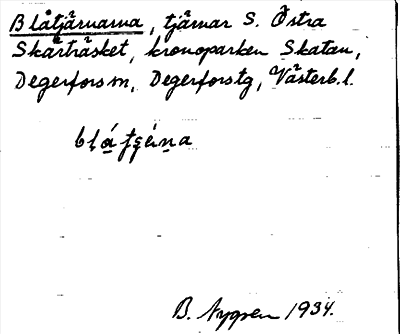 Blåtjärnarna, tjärnar S. Östra
Skärträsket, kronoparken Skatan,
Degerfors sn, Degerfors tg, Västerb. l.
B. Nygren 1934.